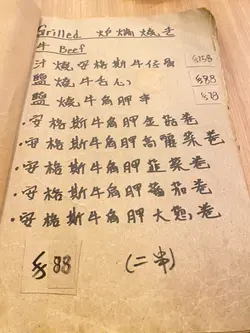 Grilled 炉端燒き
牛 Beef
汁燒安格斯牛仔骨 $138
鹽燒牛舌心 $88
鹽燒牛肩胛串 $78
・安格斯牛肩胛金菇卷
・安格斯牛肩胛高麗菜卷
・安格斯牛肩胛韮菜卷
・安格斯牛肩胛蕃茄卷
・安格斯牛肩胛大葱卷
$88 (二串)